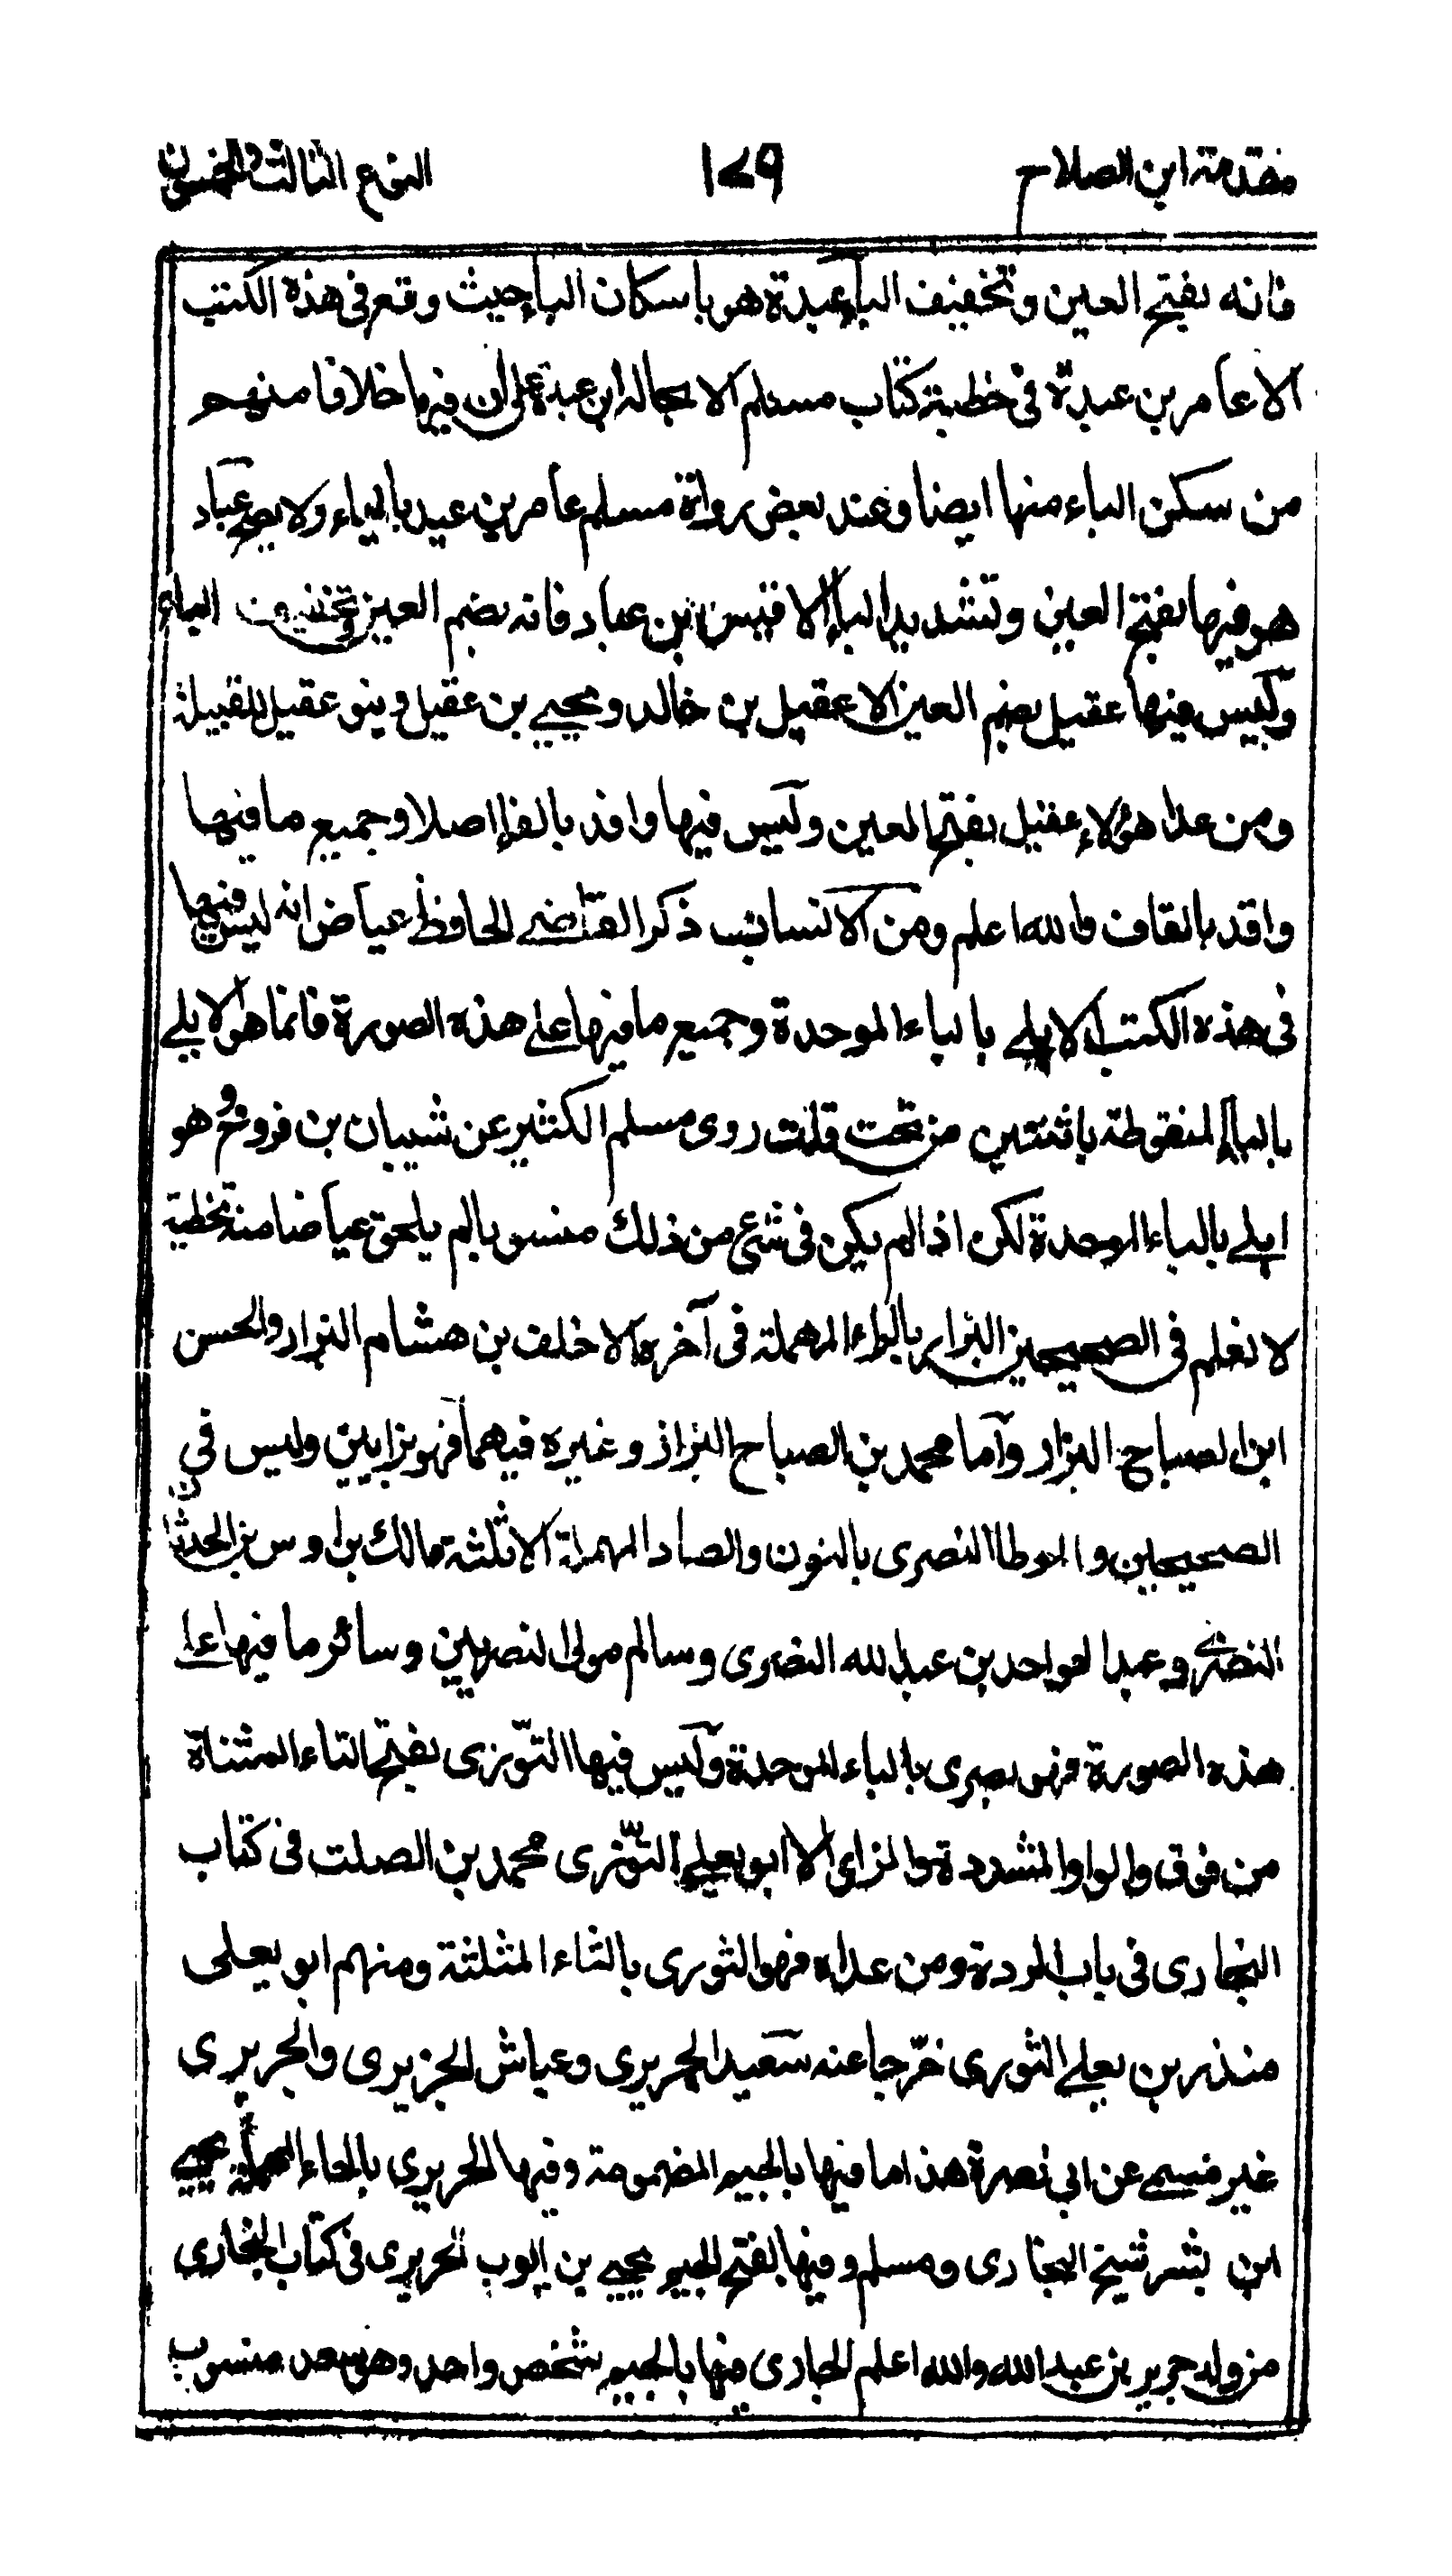 مقدمة ابن الصلاح ١٧٩ النوع الثالث والخمسون
فانه بفتح العين وتخفيف الباء عبدة هو باسكان الباء حيث وقع في هذه الكتب
الا عامر بن عبدة في خطبة كتاب مسلم الا بجالة ابن عبدة على ان فيهما خلافا منهم
من سكن الباء منها ايضا وعند بعض رواة مسلم عامر بن عبد بالهاء ولا يصح عباد
هو فيها بفتح العين وتشديد الباء الا قيس بن عباد فانه بضم العين وتخفيف الباء
وليس فيها عقيل بضم العين الا عقيل بن خالد ويحيے بن عقيل وبنو عقيل للقبيلة
ومن عدا هؤلاء عقيل بفتح العين وليس فيها وافد بالفاء اصلا وجميع ما فيها
واقد بالقاف والله اعلم ومن الانساب ذكر القاضے الحافظ عياض انه ليس فيها
في هذه الكتب الابلے بالباء الموحدة وجميع ما فيها علے هذه الصورة فانما هو الايلے
بالياء المنقوطة باثنتين من تحت قلت روى مسلم الكثير عن شيبان بن فروخ وهو
ابلے بالباء الموحدة لكن اذا لم يكن في شئ من ذلك منسوبا لم يلحق عياضا منه تخطية
لا نعلم في الصحيحين البزار بالراء المهملة في آخره الا خلف بن هشام البزار والحسن
ابن الصباح البزار وآما محمد بن الصباح البزاز وغيره فيهما فهو بزايين وليس في
الصحيحين والموطا النصرى بالنون والصاد المهملة الا ثلثة مالك بن اوس بن الحدثان
النصرے وعبد الواحد بن عبد الله النصرى وسالم مولى النصريين وسائر ما فيها علے
هذه الصورة فهو بصرى بالباء الموحدة وليس فيها التوّزى بفتح التاء المثناة
من فوق والواو المشددة والزاى الا ابو يعلے التوّزى محمد بن الصلت في كتاب
البخارى في باب الردة ومن عداه فهو الثورى بالثاء المثلثة ومنهم ابو يعلى
منذر بن يعلے الثورى خرّجا عنه سعيد الجريرى وعباس الجريرى والجريرى
غير مسمے عن ابي نصرة هذا ما فيها بالجيم المضمومة وفيها الحريرى بالحاء المهملة يحيے
ابن بشر شيخ البخارى ومسلم وفيها بفتح الجيم يحيے بن ايوب الجريرى في كتاب البخارى
من ولد جرير بن عبد الله والله اعلم الجارى فيها بالجيم شخص واحد وهو سعد منسوب